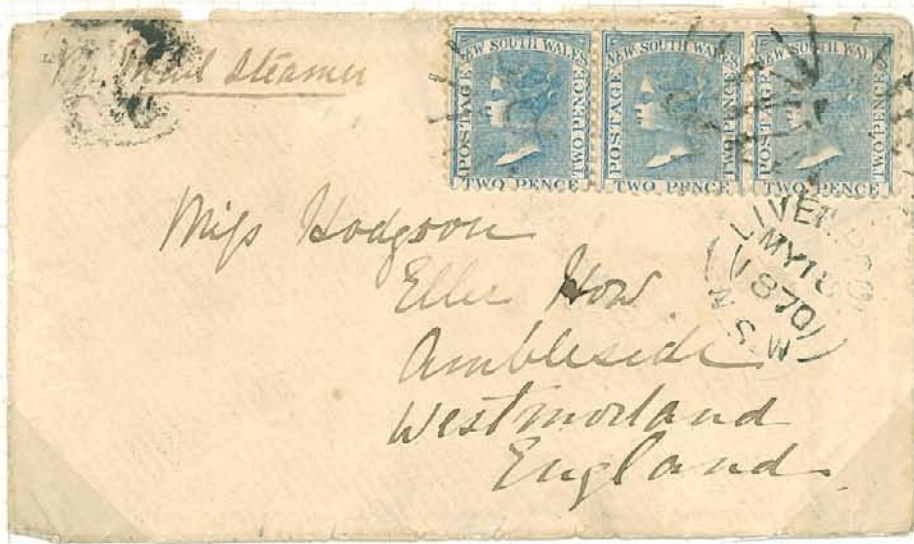 Per Mail Steamer
NEW SOUTH WALES
POSTAGE
TWO PENCE
TWO PENCE
NEW SOUTH WALES
POSTAGE
TWO PENCE
TWO PENCE
NEW SOUTH WALES
POSTAGE
TWO PENCE
TWO PENCE
LIVERPOOL
MY 18
1870
N.S.W
Miss Hodgson
Eller How
Ambleside
Westmorland
England